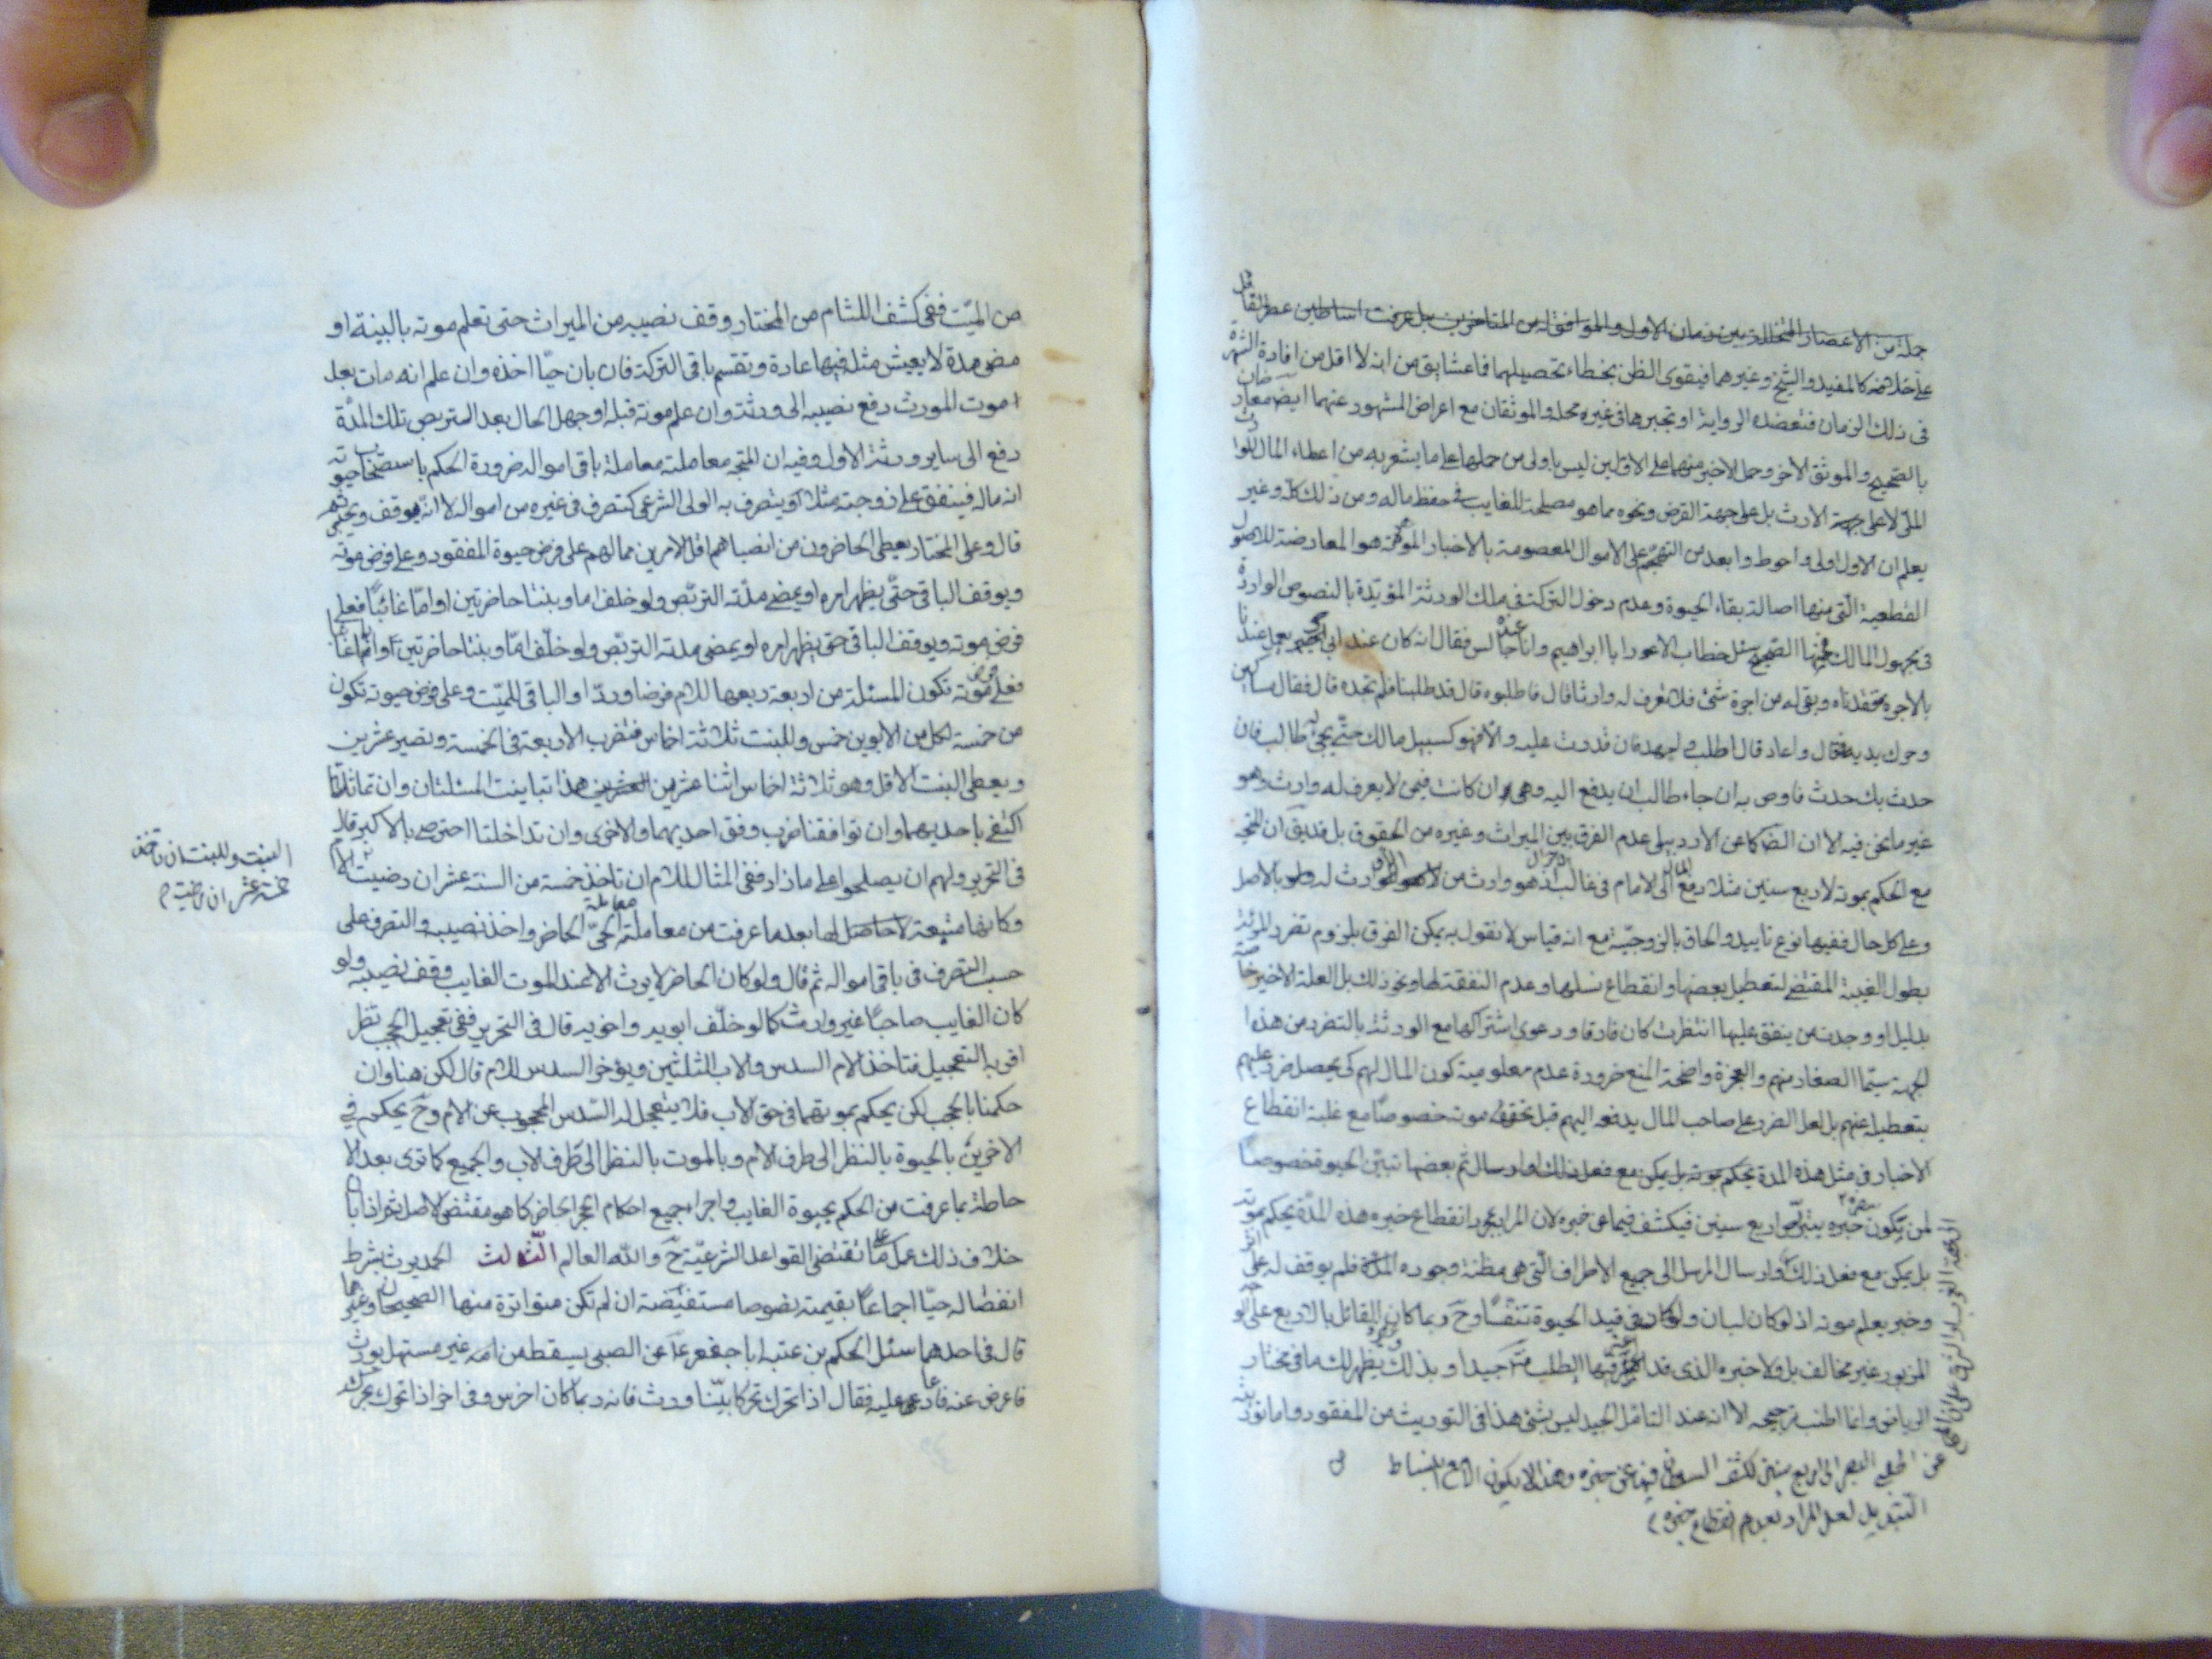 جملة من الاعصار المتخللة بين زمان الاول والموافق له من المتاخرين بل عرفت اساطين عصر القائل
على خلافه كالمفيد والشيخ وغيرهما فيقوى الظن بخطاء تحصيلهما فاعتضابق من انه لا اقل من افادة الشهرة
فى ذلك الزمان فتعضده الرواية او تجبرها فى غيره محله والموثقان مع اعراض المشهور عنهما ايضا معارضان
بالصحيح والموثق الاخر وحمل الاخير منهما على الاولين ليس باولى من حملها على ما يشعر به من اعطاء المال للوارث
الملى لا على جهة الارث بل على جهة القرض ونحوه مما هو مصلحة للغايب فى حفظ ماله ومن ذلك كله وغيره
يعلم ان الاول اولى واحوط وابعد من التهجم على الاموال المعصومة بالاخبار الموهمة هو المعارضة للاصول
القطعية التى منها اصالة بقاء الحيوة وعدم دخول التركة فى ملك الورثة المؤيدة بالنصوص الواردة
فى مجهول المالك فمنها الصحيح سئل خطاب الاعور ابا ابراهيم وانا جالس فقال انه كان عند ابى اجير يعمل عنده
بالاجرة ففقدناه وبقى له من اجرة شئ فلا نعرف له وارثا قال فاطلبوه قال قد طلبنا فلم نجده قال فقال مساكين
وحرك يديه قال واعاد قال اطلب واجهد فان قدرت عليه والا فهو كسبيل مالك حتى يجئ له طالب فان
حدث بك حدث فاوص به ان جاء طالب ان يدفع اليه وهى وان كانت فيمن لا يعرف له وارث وهو
غير ما نحن فيه الا ان الظ كما عن الاردبيلى عدم الفرق بين الميراث وغيره من الحقوق بل قد يق ان المتجه
مع الحكم بموته لاربع سنين مثلا دفع المال الى الامام فى غالب الاحوال اذ هو وارث من لا وارث له ولو بالاصل
وعلى كل حال ففيها نوع تاييد والحاق بالزوجية مع انه قياس لا نقول به يمكن الفرق بلزوم تضرر المرئة
بطول الغيبة المقتضى لتعطيل بعضها وانقطاع نسلها وعدم النفقة لها ونحو ذلك بل العلة الاخيرة خاصة
بدليل او وجدت من ينفق عليها انتظرت كان فارقا ودعوى اشتراكها مع الورثة بالتضرر من هذه
الجهة سيما الصغار منهم والعجزة واضحة المنع ضرورة عدم معلومية كون المال لهم كى يحصل ضرر عليهم
بتعطيله عنهم بل لعل الضرر على صاحب المال يدفعه اليهم قبل تحقق موته خصوصا مع غلبة انقطاع
الاخبار فى مثل هذه المدة يحكم بموته بل يمكن مع فعل ذلك او ارسال ثم بعضها تبين الحيوة خصوصا
لمن يكون خبره يتربص اربع سنين فيكشف فيما عن خبره لان المراد بمجرد انقطاع خبره هذه المدة يحكم بموته
بل يمكن مع فعل ذلك وارسال المرسل الى جميع الاطراف التى هى مظنة وجوده المدة فلم يوقف له على اثر
وخبر يعلم موته اذ لو كان لبان ولو كان فى قيد الحيوة وح ربما كان القائل بالاربع على الوجه
المزبور غير مخالف بل ولا خبره الذى قد الطلب جيدا وبذلك يظهر لك ما فى مختار
الرياض وانما اطنب ترجيحه الا انه عند التامل الجيد ليس بشئ هذا فى التوريث من المفقود واما توريثه
عن اربع سنين لكشف السلطان فيها عن خبره وهذا لا يكون الا مع انبساط
لعل المراد بعدم انقطاع خبره
من الميت ففى كشف اللثام من المختار وقف نصيبه من الميراث حتى تعلم موته بالبينة او
مضى مدة لا يعيش مثله فيها عادة وتقسم باقى التركة فان بان حيا اخذه وان علم انه مات بعد
موت المورث دفع نصيبه الى ورثته وان علم موته قبله او جهل الحال بعد التربص تلك المدة
دفع الى ساير ورثة الاول وفيه ان المتجه معاملته معاملة باقى امواله ضرورة الحكم باستصحاب حيوته
انه ماله فينفق على زوجته مثلا ويتصرف به الولى الشرعى كتصرف فى غيره من امواله لا انه يوقف ثم
قال وعلى المختار يعطى الحاضرون من انصبائهم اقل الامرين مما لهم على فرض حيوة المفقود وعلى فرض موته
ويوقف الباقى حتى يظهر امره او يمضى مدته التربص ولو خلف اما وبنتا حاضرتين او اما غائبا فعلى
فرض موته ويوقف الباقى حتى يظهر امره او يمضى مدته التربص ولو خلف اما وبنتا حاضرتين وابا غائبا
فعلى فرض موته تكون المسئلة من اربعة ربعها للام فرضا وردا والباقى للميت وعلى فرض حيوته تكون
من خمسة لكل من الابوين خمس وللبنت ثلاثة اخماس فتضرب الاربعة فى الخمسة وتصير عشرين
ويعطى البنت الاقل وهو ثلاثة اخماس اثنا عشر من العشرين هذا ان تباينت المسئلتان وان تماثلتا
اكتفى باحديهما وان توافقتا ضرب وفق احديهما والاخرى وان تداخلتا اجتزى بالاكبر قال
فى التحرير ولهم ان يصلحوا على ما زاد ففى المثال للام ان تاخذ خمسة من الستة عشر ان رضيت
البنت وللبنت ان تاخذ
خمسة عشر ان رضيت م
وكانها متبعة لا حاصل لها بعد ما عرفت من معاملته معاملة الحى الحاضر واخذ نصيبه والتصرف على
حسب التصرف فى باقى امواله ثم قال ولو كان الحاضر لا يرث الا عند الموت الغايب وقف نصيبه ولو
كان الغايب حاجبا غير وارث كما لو خلف ابويه واخويه قال فى التحرير ففى تعجيل الحجب نظر
اقربه التعجيل فتاخذ الام السدس والاب الثلثين ويؤخر السدس للام قال لكن هنا وان
حكمنا بالحجب لكن يحكم بموتهما فى حق الاب فلا يتعجل له السدس المحجوب عن الام وح يحكم فى
الاخوين بالحيوة بالنظر الى طرف الام وبالموت بالنظر الى طرف الاب والجميع كما ترى بعد الا
حاطة بما عرفت من الحكم بحيوة الغايب واجراء جميع احكام الحاضر كما هو مقتضى الاصل ثم اذا بان
خلاف ذلك عمل على ما تقتضى القواعد الشرعية ح والله العالم الثالث الحمل يرث بشرط
انفصاله حيا اجماعا بقيمته نصوصا مستفيضة ان لم تكن متواترة منها الصحيحان وغيرهما
قال فى احدهما سئل الحكم بن عتبه ابا جعفر ع عن الصبى يسقط من امه غير مستهل يورث
فاعرض عنه فاعاد عليه فقال اذا تحرك تحركا بينا ورث فانه ربما كان اخرس وفى اخر اذا تحرك